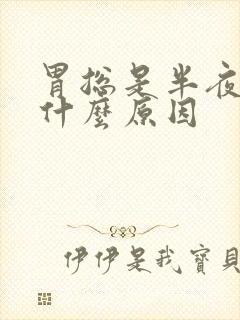 胃捴是半夜
什麼原因
伊伊是我寶貝